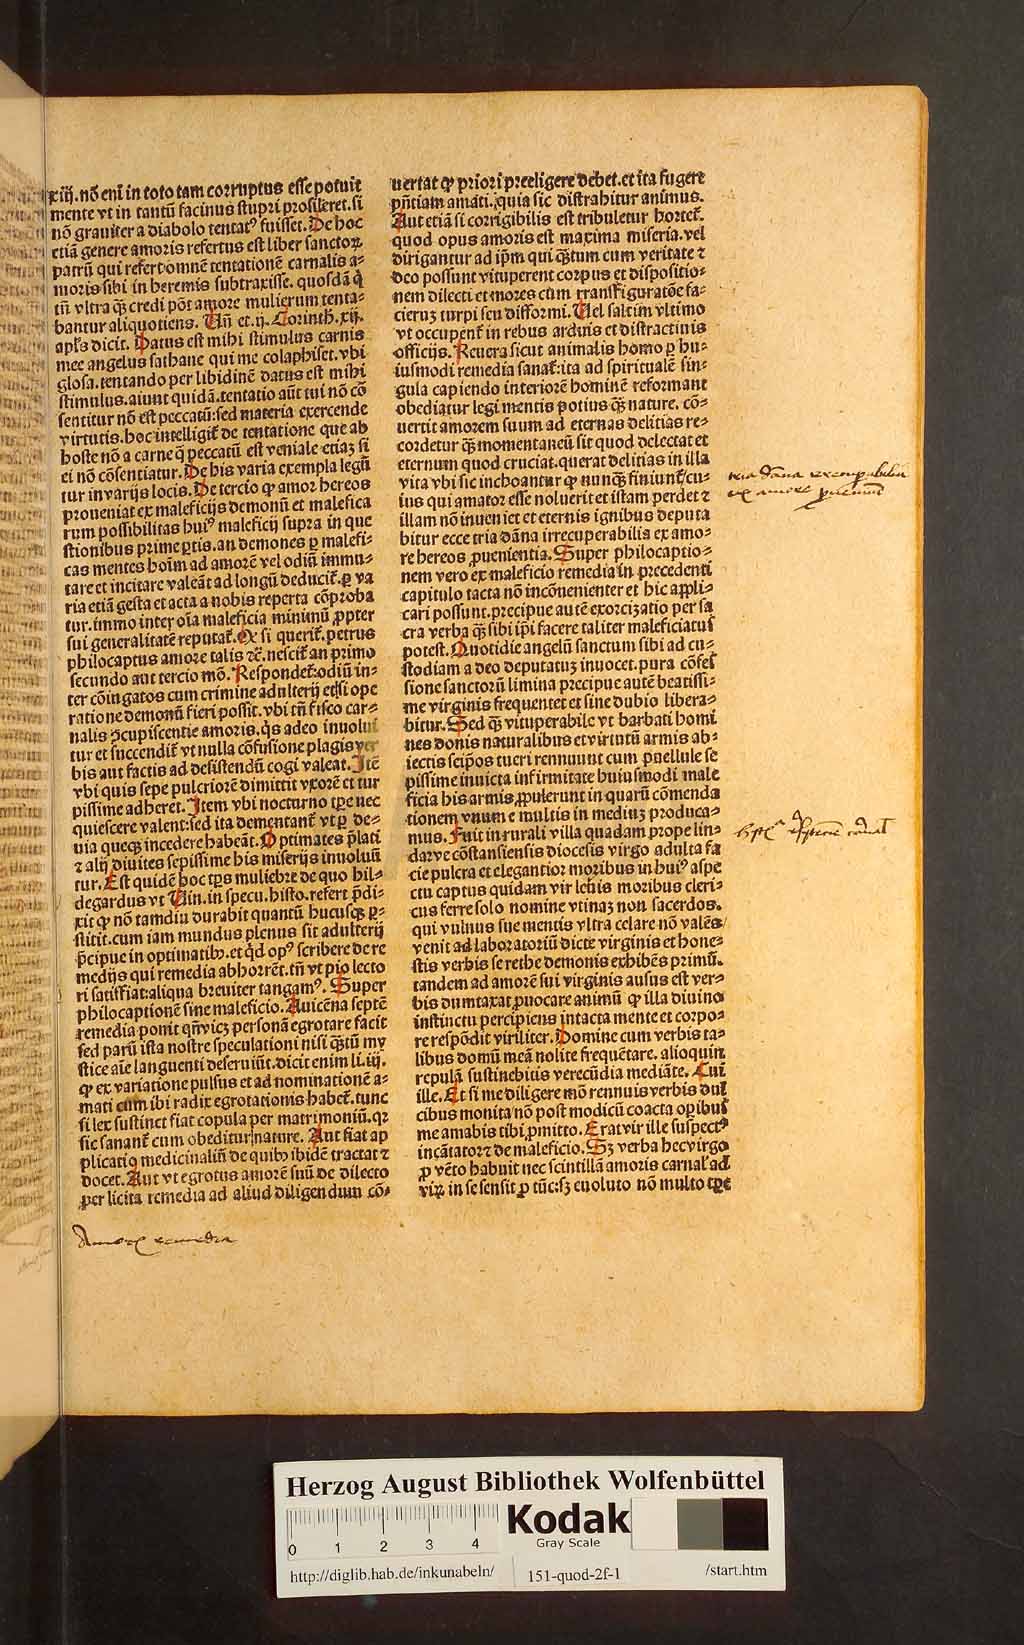 xiij. nō eni in toto tam corruptus esse potuit
mente vt in tantū facinus stupri prosileret. si
nō grauiter a diabolo tentatꝰ fuisset. De hoc
etiā genere amoris refertus est liber sanctoꝝ
patrū qui refert omnē tentationē carnalis a⸗
moris sibi in heremis subtraxisse. quosdā q̄
tn̄ vltra q̄ꝫ credi pōt amore mulierum tenta⸗
bantur aliquotiens. Vn̄ et .ij. Corinth. xij.
apl's dicit. Datus est mihi stimulus carnis
mee angelus sathane qui me colaphiset. vbi
glosa. tentando per libidinē datus est mihi
stimulus. aiunt quidā. tentatio aūt cui nō cō
sentitur nō est peccatū: sed materia exercende
virtutis. hoc intelligit̄ de tentatione que ab
hoste nō a carne q̄ peccatū est veniale etiaꝫ si
ei nō cōsentiatur. De his varia exempla legū
tur in varijs locis. De tercio ꝙ amor hereos
proueniat ex maleficijs demonū et malefica
rum possibilitas huiꝰ maleficij supra in que
stionibus prime ꝑtis. an demones ꝑ malefi⸗
cas mentes hoīm ad amorē vel odiū immu⸗
tare et incitare valeāt ad longū deducit̄. ꝑ va
ria etiā gesta et acta a nobis reperta cōproba
tur. immo inter oīa maleficia minimū ꝓpter
sui generalitatē reputat̄. Et si querit̄. petrus
philocaptus amore talis ⁊c̄. nescit̄ an primo
secundo aut tercio mō. Respondet̄: odiū in⸗
ter cōiugatos cum crimine adulterij etsi ope
ratione demonū fieri possit. vbi tn̄ fisco car⸗
nalis ꝯcupiscentie amoris. q̇s adeo inuolui
tur et succendit̄ vt nulla cōfusione plagis ver
bis aut factis ad desistendū cogi valeat. Itē
vbi quis sepe pulcriorē dimittit vxorē et tur
pissime adheret. Item vbi nocturno tꝑe nec
quiescere valent: sed ita dementant̄ vt ꝑ de⸗
uia queqꝫ incedere habeāt. Optimates p̄lati
⁊ alij diuites sepissime his miserijs inuoluū
tur. Est quidē hoc tp̄s muliebre de quo hil⸗
degardus vt Vin. in specu. histo. refert p̄di⸗
xit ꝙ nō tamdiu durabit quantū hucusqꝫ ꝑ⸗
stitit. cum iam mundus plenus sit adulterij
p̄cipue in optimatibꝰ. et q̇d opꝰ scribere de re
medijs qui remedia abhorrēt. tn̄ vt pio lecto
ri satisfiat: aliqua breuiter tangamꝰ. Super
philocaptionē sine maleficio. Auicēna septē
remedia ponit qn̄ vicꝫ personā egrotare facit
sed parū ista nostre speculationi nisi q̄ꝫtū my
stice aīe languenti deseruiūt. dicit enim li. iij.
ꝙ ex variatione pulsus et ad nominationē a⸗
mati cum ibi radix egrotationis habet̄. tunc
si lex sustinet fiat copula per matrimoniū. qꝛ
sic sanant̄ cum obeditur nature. Aut fiat ap
plicatiō medicinaliū de quibꝰ ibidē tractat ⁊
docet. Aut vt egrotus amorē suū de dilecto
per licita remedia ad aliud diligendum cō⸗
Amoris remedia
uertat ꝙ priori preeligere debet. et ita fugere
pn̄tiam amati. quia sic distrahitur animus.
Aut etiā si corrigibilis est tribuletur hortet̄.
quod opus amoris est maxima miseria. vel
dirigantur ad ip̄m qui q̄ꝫtum cum veritate ⁊
deo possunt vituperent corpus et dispositio⸗
nem dilecti et mores cum transfiguratōe fa⸗
cieruꝫ turpi seu difformi. Vel saltim vltimo
vt occupent̄ in rebus arduis et distractiuis
officijs. Reuera sicut animalis homo ꝑ hu⸗
iusmodi remedia sanat̄: ita ad spirituale sin⸗
gula capiendo interiorē hominē reformant
obediatur legi mentis potius q̄ꝫ nature. cō⸗
uertit amorem suum ad eternas delitias re⸗
cordetur q̄ꝫ momentaneū sit quod delectat et
eternum quod cruciat. querat delitias in illa
vita vbi sic inchoantur ꝙ nunq̄ꝫ finiunt̄/cu⸗
ius qui amator esse noluerit et istam perdet ⁊
illam nō inueniet et eternis ignibus deputa
bitur ecce tria dāna irrecuperabilia ex amo⸗
re hereos ꝓuenientia. Super philocaptio⸗
nem vero ex maleficio remedia in precedenti
capitulo tacta nō incōuenienter et hic appli⸗
cari possunt. precipue autē exorcizatio per sa
cra verba q̄ꝫ sibi ip̄i facere taliter maleficiatus
potest. Quotidie angelū sanctum sibi ad cu⸗
stodiam a deo deputatuꝫ inuocet. pura cōfes
sione sanctorū limina precipue autē beatissi⸗
me virginis frequentet et sine dubio libera⸗
bitur. Sed q̄ꝫ vituperabile vt barbati homi
nes donis naturalibus et virtutū armis ab⸗
iectis seip̄os tueri rennuunt cum puellule se
pissime inuicta infirmitate huiusmodi male
ficia his armis ꝓpulerunt in quarū cōmenda
tionem vnum e multis in mediuꝫ produca⸗
mus. Fuit in rurali villa quadam prope lin⸗
dawe cōstansiensis diocesis virgo adulta fa
cie pulcra et elegantior moribus in huiꝰ aspe
ctu captus quidam vir lenis moribus cleri⸗
cus ferre solo nomine vtinaꝫ non sacerdos.
qui vulnus sue mentis vltra celare nō valēs/
venit ad laboratoriū dicte virginis et hone⸗
stis verbis se rethe demonis exhibēs primū.
tandem ad amorē sui virginis ausus est ver⸗
bis dumtaxat ꝓuocare animū ꝙ illa diuino
instinctu percipiens intacta mente et corpo⸗
re respōdit viriliter. Domine cum verbis ta⸗
libus domū meā nolite frequētare. alioquin
repulā sustinebitis verecūdia mediāte. Cui
ille. Et si me diligere mō rennuis verbis dul
cibus monita nō post modicū coacta oꝑibus
me amabis tibi ꝓmitto. Erat vir ille suspectꝰ
incātator ⁊ de maleficio. Sꝫ verba hec virgo
ꝓ vēto habuit nec scintillā amoris carnal' ad
virꝝ in se sensit ꝓ tūc: sꝫ euoluto nō multo tꝑe
tria dāna irrecuperabilia
ex amore prouenientia
Herzog August Bibliothek Wolfenbüttel
0 1 2 3 4
Kodak
Gray Scale
http://diglib.hab.de/inkunabeln/
151-quod-2f-1
/start.htm